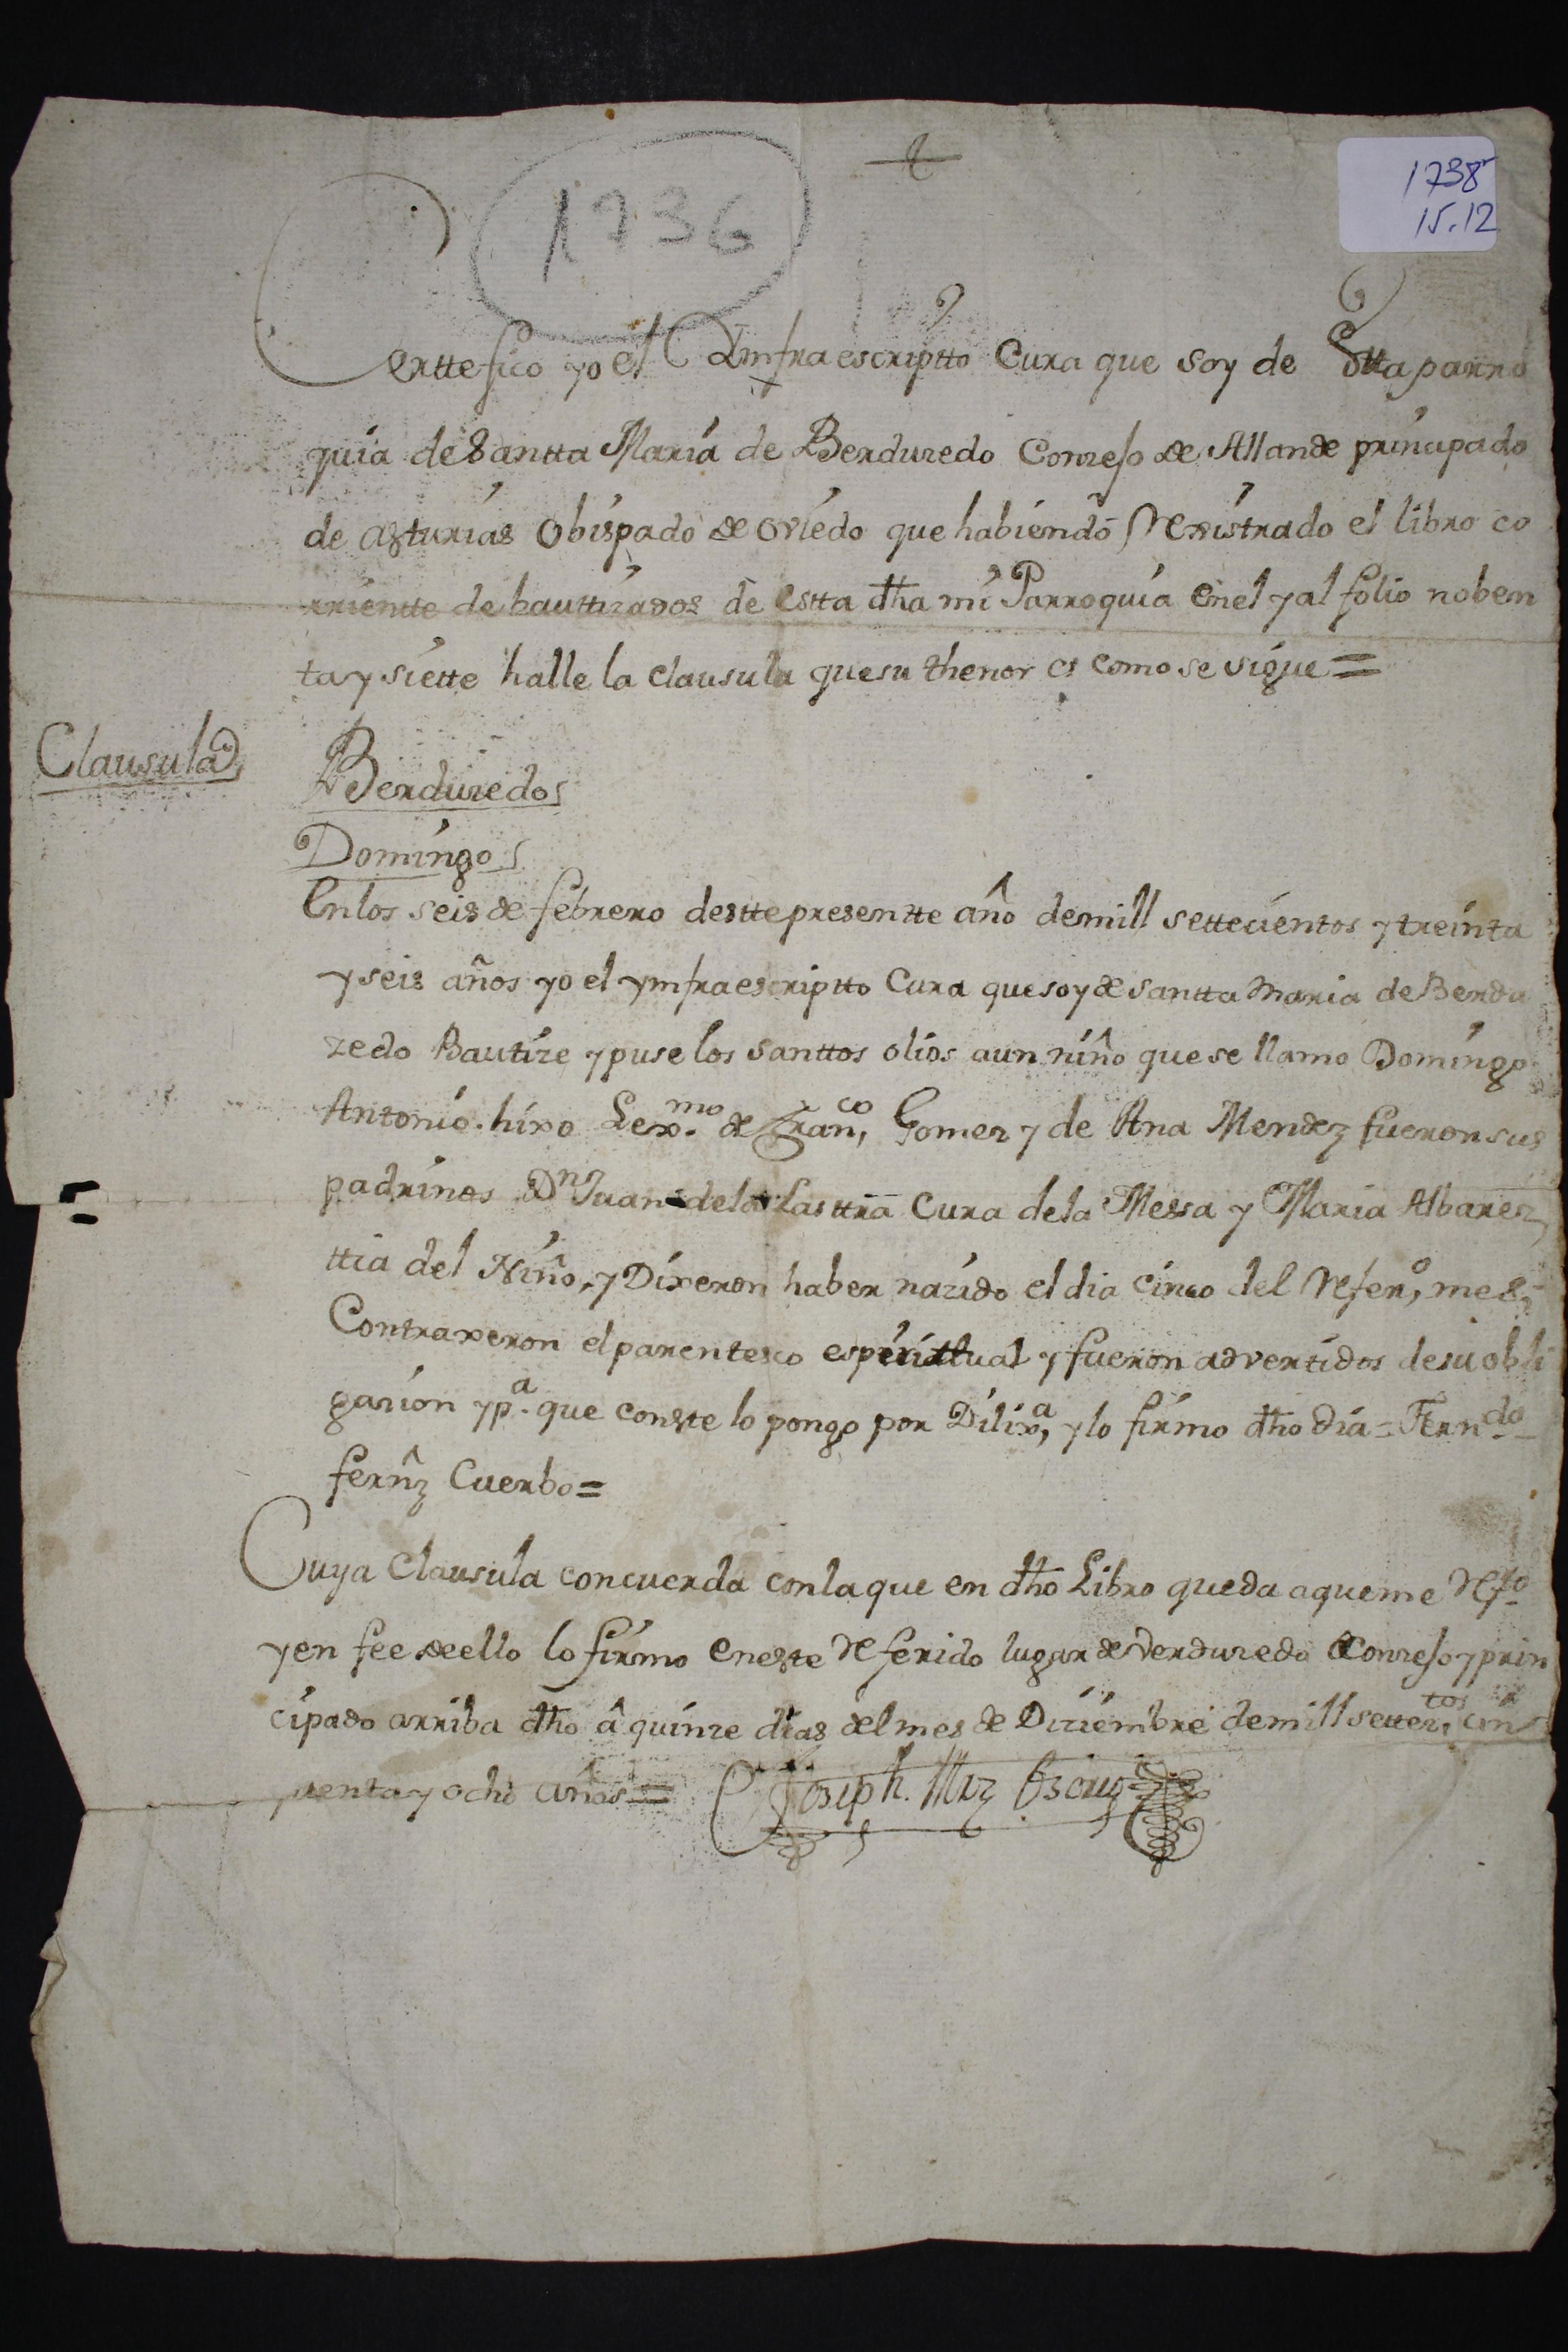 1736
1738
15.12
Certtefico yo el Ymfraescriptto Cura que soy de Stta parro
quia de Santta Maria de Berduzedo Conzejo de Allande prinzipado
de Azturias Obispado de Oviedo que habiendo Rexistrado el libro co
rriente de bauttizados de estta dha mi Parroquia en el y al folio noben
ta y siette halle la clausula que su thenor es como se sigue =
Clausula
Berduzedo
Domingo
En los seis de febrero destte presentte año de mill settecientos y treinta
y seis años yo el ymfraescriptto Cura que soy de Santta Maria de Berdu
zedo Bautize y puse los santtos olios a un niño que se llamo Domingo
Antonio. hixo Lexmo. de Franco, Gomez y de Ana Mendez fueron sus
padrinos Dn Juan de la Lasttra Cura de la Messa y Maria Albarez
ttia del Niño, y Dixeron haber nazido el dia cinco del Refero, mes,
Contraxeron el parentesco espirittual y fueron advertidos de su obli
gazion y pa. que conste lo pongo por Dilixa, y lo firmo dho dia = Ferndo
fernz Cuerbo =
Cuya Clausula concuerda con la que en dho Libro queda a que me Rfo
y en fee de ello lo firmo en este Referido lugar de Verduzedo Conzejo y prin
cipado arriba dho â quinze dias del mes de Diziembre de mill setteztos, cin
quenta y ocho años =
Joseph.